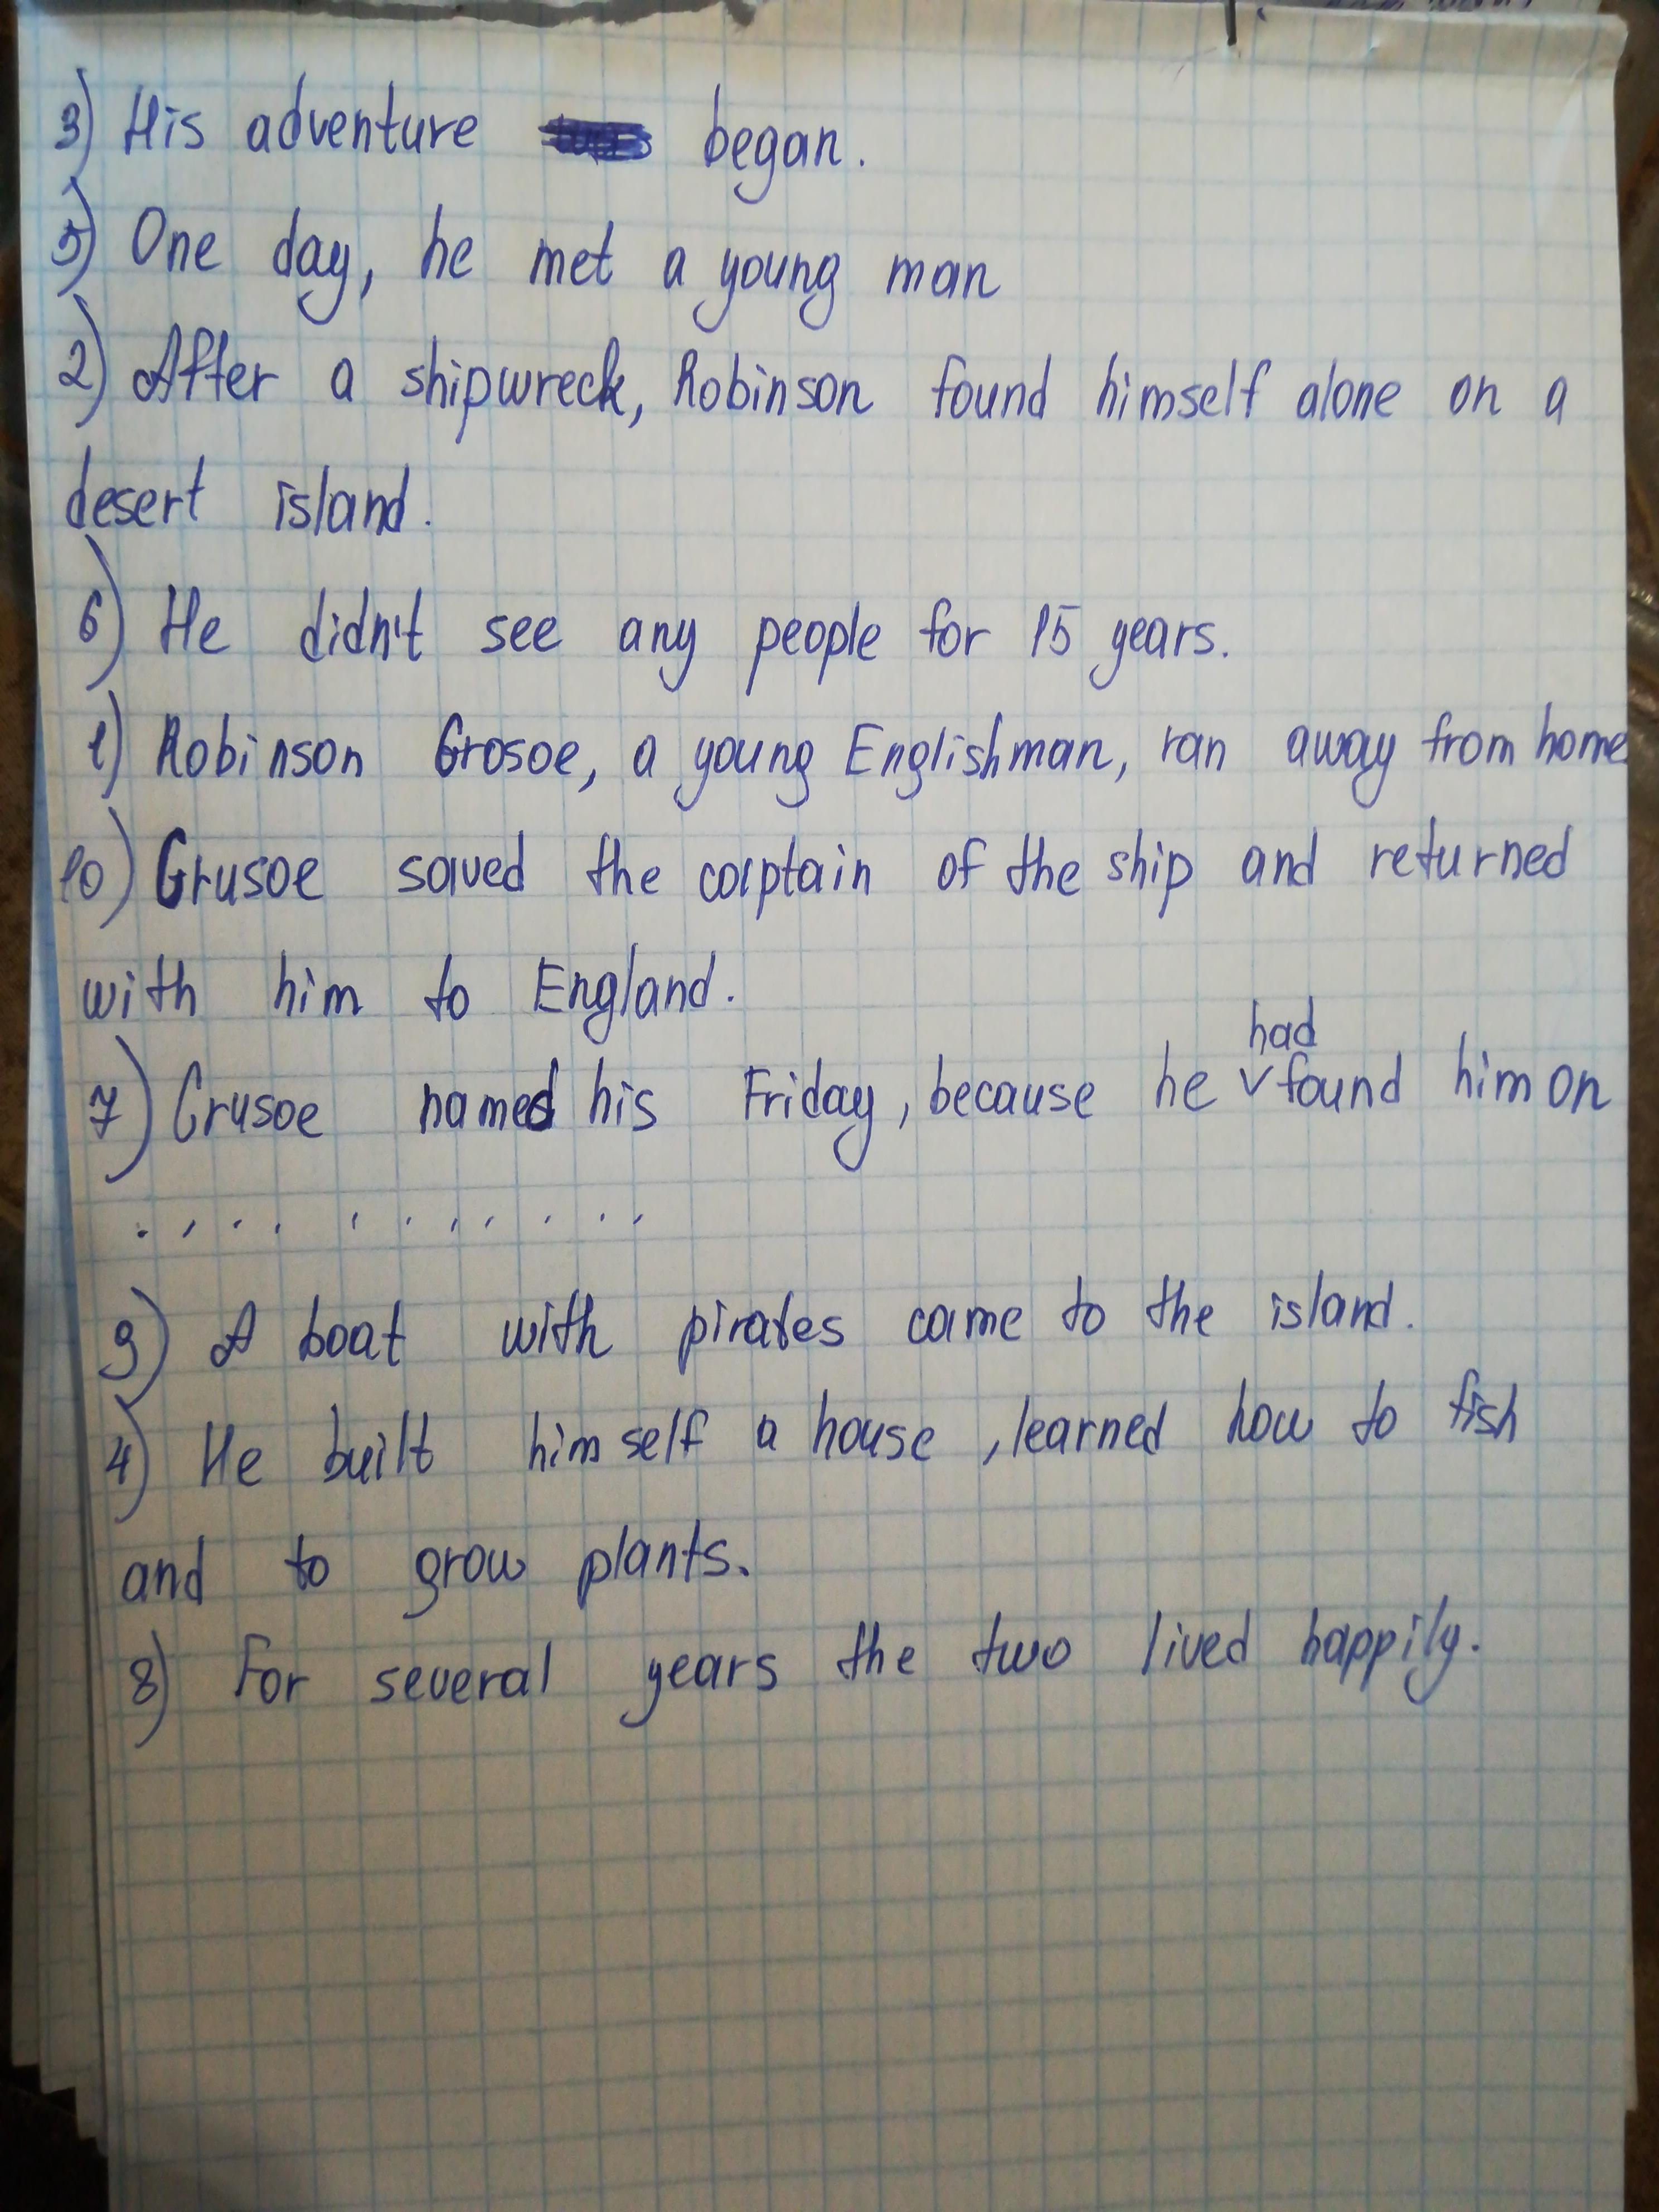 3) His adventure began.
5) One day, he met a young man
2) After a shipwreck, Robinson found himself alone on a
desert island.
6) He didn't see any people for 15 years.
1) Robinson Grosoe, a young Englishman, ran away from home
10) Grusoe saved the captain of the ship and returned
with him to England.
had
7) Crusoe named his Friday, because he v found him on
. . . . . . . . . . . .
9) A boat with pirates came to the island.
4) He built himself a house, learned how to fish
and to grow plants.
8) For several years the two lived happily.